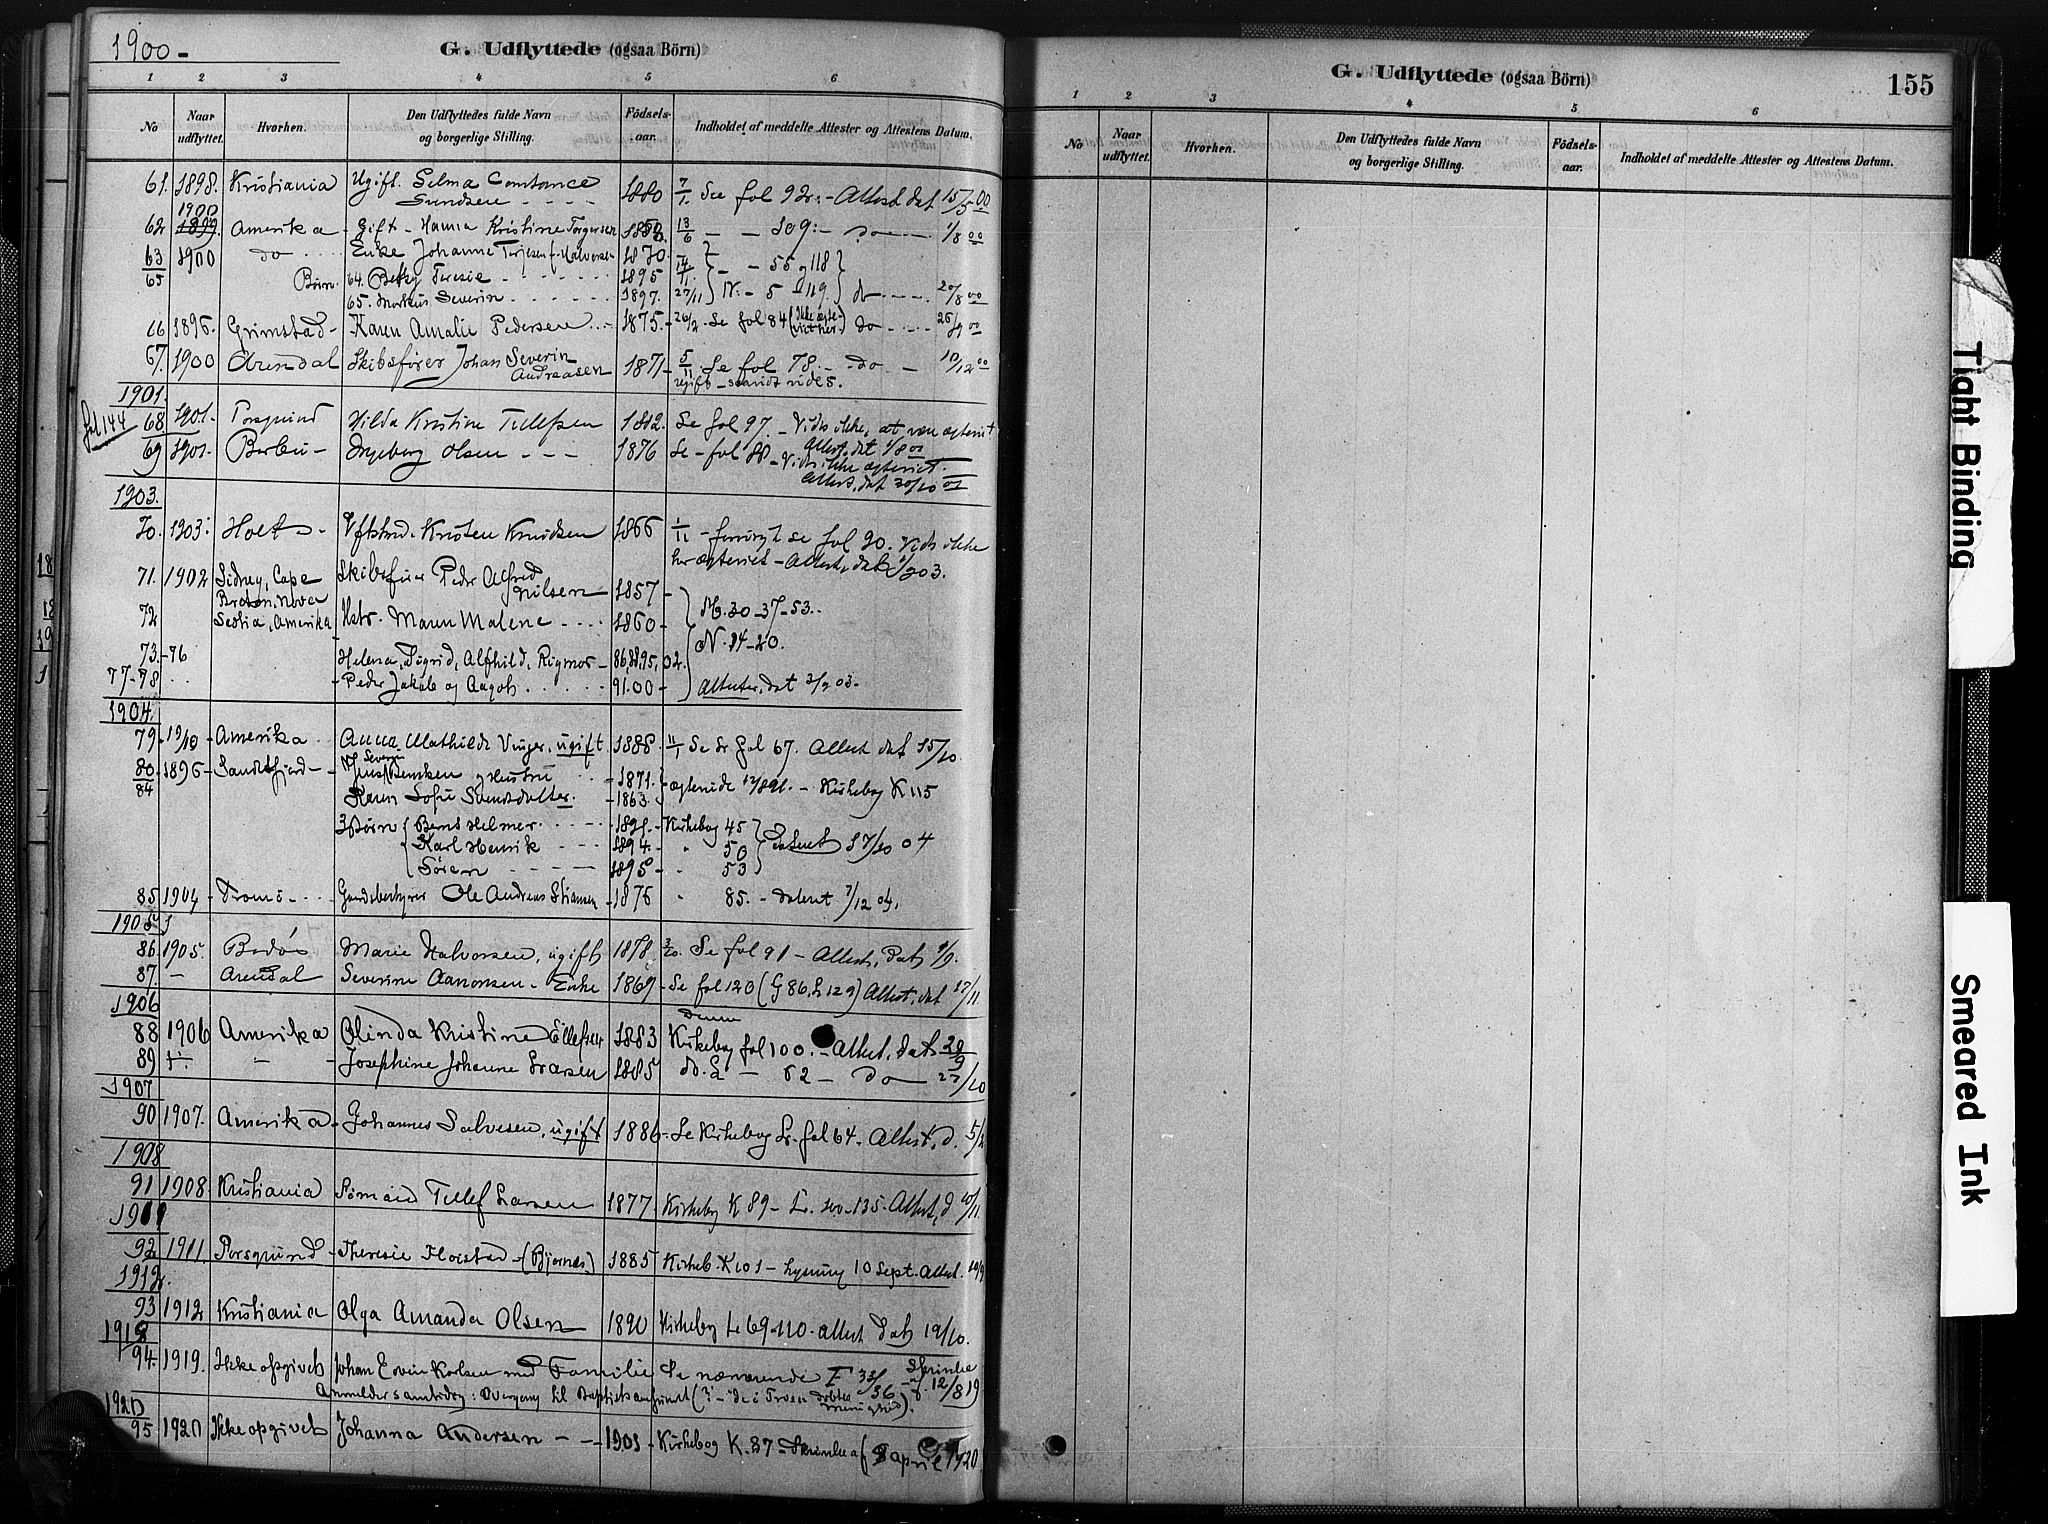 1900 -
G. Udflyttede (ogsaa Börn)
1 2 3 4 5 6
No Naar udflyttet. Hvorhen. Den Udflyttedes fulde Navn og borgerlige Stilling. Födsels-aar. Indholdet af meddelte Attester og Attestens Datum.
61. 1898. Kristiania Ugift. Selma Constance Gundsen - - - - 1880 7/1 Se fol 92. - Attest dat 15/5 00
62 1900 1899. Amerika - Gift - Hanna Kristine Torgersen 1850 13/6 - - 109. - do - 1/8 00
63/65 1900 do Enke Johanne Terjesen f. Halvorsen 1870. 14/11 - - 55 og 118
Börn. 64. Betsy Teresie - - - 1895
65. Markus Severin - - - 1897. 27/11 N. - 5 - 119. do - - - 20/8 00
66 1896. Grimstad - Karen Amalie Pedersen - 1875 - 26/2 - Se fol 84 (Ikke ægteviet her.) do - - - 26/9 00
67. 1900 Arendal Skibsfører Johan Severin Andreasen 1871 - 5/11. Se fol 78. - do - 10/12 00
ugift - saavidt vides.
1901.
fol 144 68. 1901. Porsgrund Hilda Kristine Tellefsen 1882. Se fol 97. - Vides ikke, at være ægteviet
Attest. dat 1/8 01
69 1901. Barbu - Ingeborg Olsen - - - 1876 Se - fol 80 - Vides ikke ægteviet.
Attest. dat 30/10 01
1903.
70. 1903. Holt - Kristen Knudsen 1866 1/11 - forøvrigt se fol 90. Vides ikke
her ægteviet - Attest, dat 1/2 03.
71. 1902 Sidney, Cape Skibsfører Peder Alfred
Breton, Nova Nilsen 1857 -
72 Scotia, Amerika Hstr. Maren Malene - - - - 1860 - M. 30 - 37 - 53.
N. 14 - 20.
73. - 76 Helena, Sigrid, Alfhild, Rigmor - 86, 88, 95, 02.
77 - 78 - Peder Jakob og Aagot . . . . 91. 00 - Attester, dat 3/9 03.
1904.
79 19/10 - Amerika Anna Mathilde Vinger, ugift 1888 11/1 Se Dr fol 67. Attest dat 15/10
80/84 1896 - Sandefjord - Jens Severin Bentsen og Hustru 1871. ægteviede 12/8 91. - Kirkebog K 115
Karen Sofie Svendsdatter - 1863
3 Börn Bernt Helmer - - - 1891. - Kirkebog 45
Karl Henrik - - - 1894. - " 50 Dateret 17/10 04
Sören - - - - 1895 - 53
85 1904 - Tromö - - - Gaardsbestyrer Ole Andreas Stiansen - 1876 " 85. - dateret 7/12 04.
1905
86. 1905. Bodø Marie Halvorsen, ugift 1878. Se fol 91 - Attest. dat 1/9.
87. - Arendal Severine Aanonsen - Enke 1869 - Se fol 120 (G 86, L 129) Attest. dat 17/11.
1906
88 1906 Amerika Olinda Kristine Ellefsen 1883 denne Kirkebog fol 100. - Attest, dat 20/9
89 - - - Josephine Johanne Larsen 1885 do. L - 62 - do - 27/10
1907
90 1907. Amerika - Johannes Salvesen, ugift 1886 - Se Kirkebog Lr. fol 64. Attest. d. 5/2
1908
91 1908. Kristiania Tellef Larsen 1877 Kirkebog K 89 - Attest, d 10/11.
1911
92 1911. Porsgrund - Theresie Floistad - (Bjornes) 1885 Kirkeb. K 101 - Lysning 10 Sept. Attest. 19/9
1912.
93 1912 Kristiania Olga Amanda Olsen 1890 Kirkebog Le 69 - 110 - attest dat 19/10.
1918
94. 1919. Ikke opgivet Johan Edvin Karlsen med Familie Se nærværende F 33/36 - Skrivelse af 12/8 19
Anmelder samtidig: Overgang til Baptistsamfundet (? - "de i Troen døbtes Menighed").
1920
95 1920 Ikke opgivet Johanna Andersen - - - 1901 - Kirkebog K. 37 - Skrivelse af 8 april 1920.
G. Udflyttede (ogsaa Börn) 155
1 2 3 4 5 6
No Naar udflyttet. Hvorhen. Den Udflyttedes fulde Navn og borgerlige Stilling. Födsels-aar. Indholdet af meddelte Attester og Attestens Datum.
Tight Binding
Smeared Ink